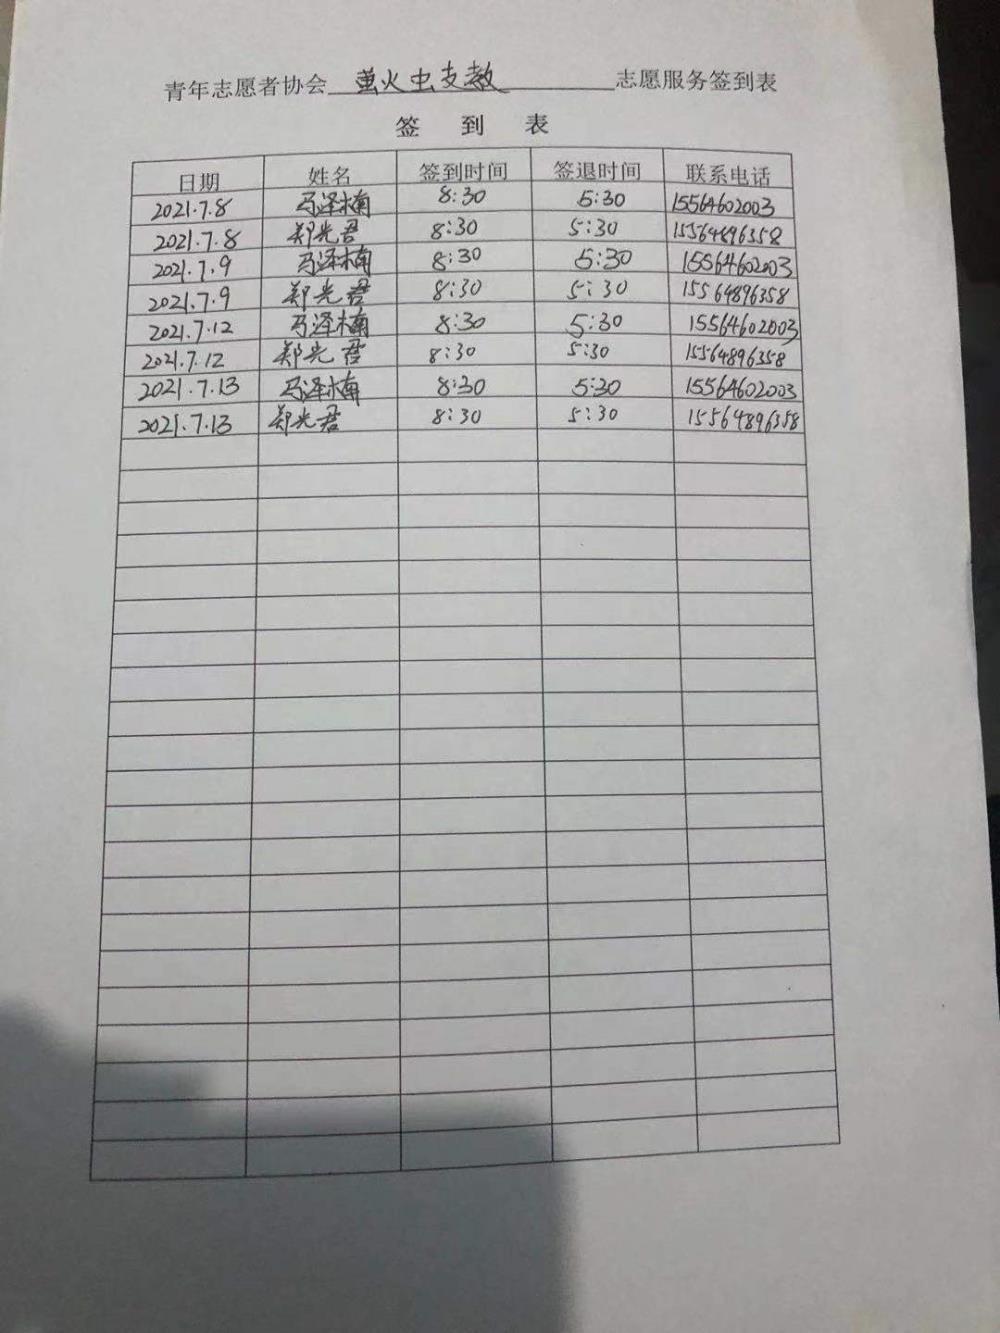 青年志愿者协会 萤火虫支教 志愿服务签到表
签 到 表
日期 姓名 签到时间 签退时间 联系电话
2021.7.8 马泽楠 8:30 5:30 15564602003
2021.7.8 郑光君 8:30 5:30 15564896358
2021.7.9 马泽楠 8:30 5:30 15564602003
2021.7.9 郑光君 8:30 5:30 15564896358
2021.7.12 马泽楠 8:30 5:30 15564602003
2021.7.12 郑光君 8:30 5:30 15564896358
2021.7.13 马泽楠 8:30 5:30 15564602003
2021.7.13 郑光君 8:30 5:30 15564896358